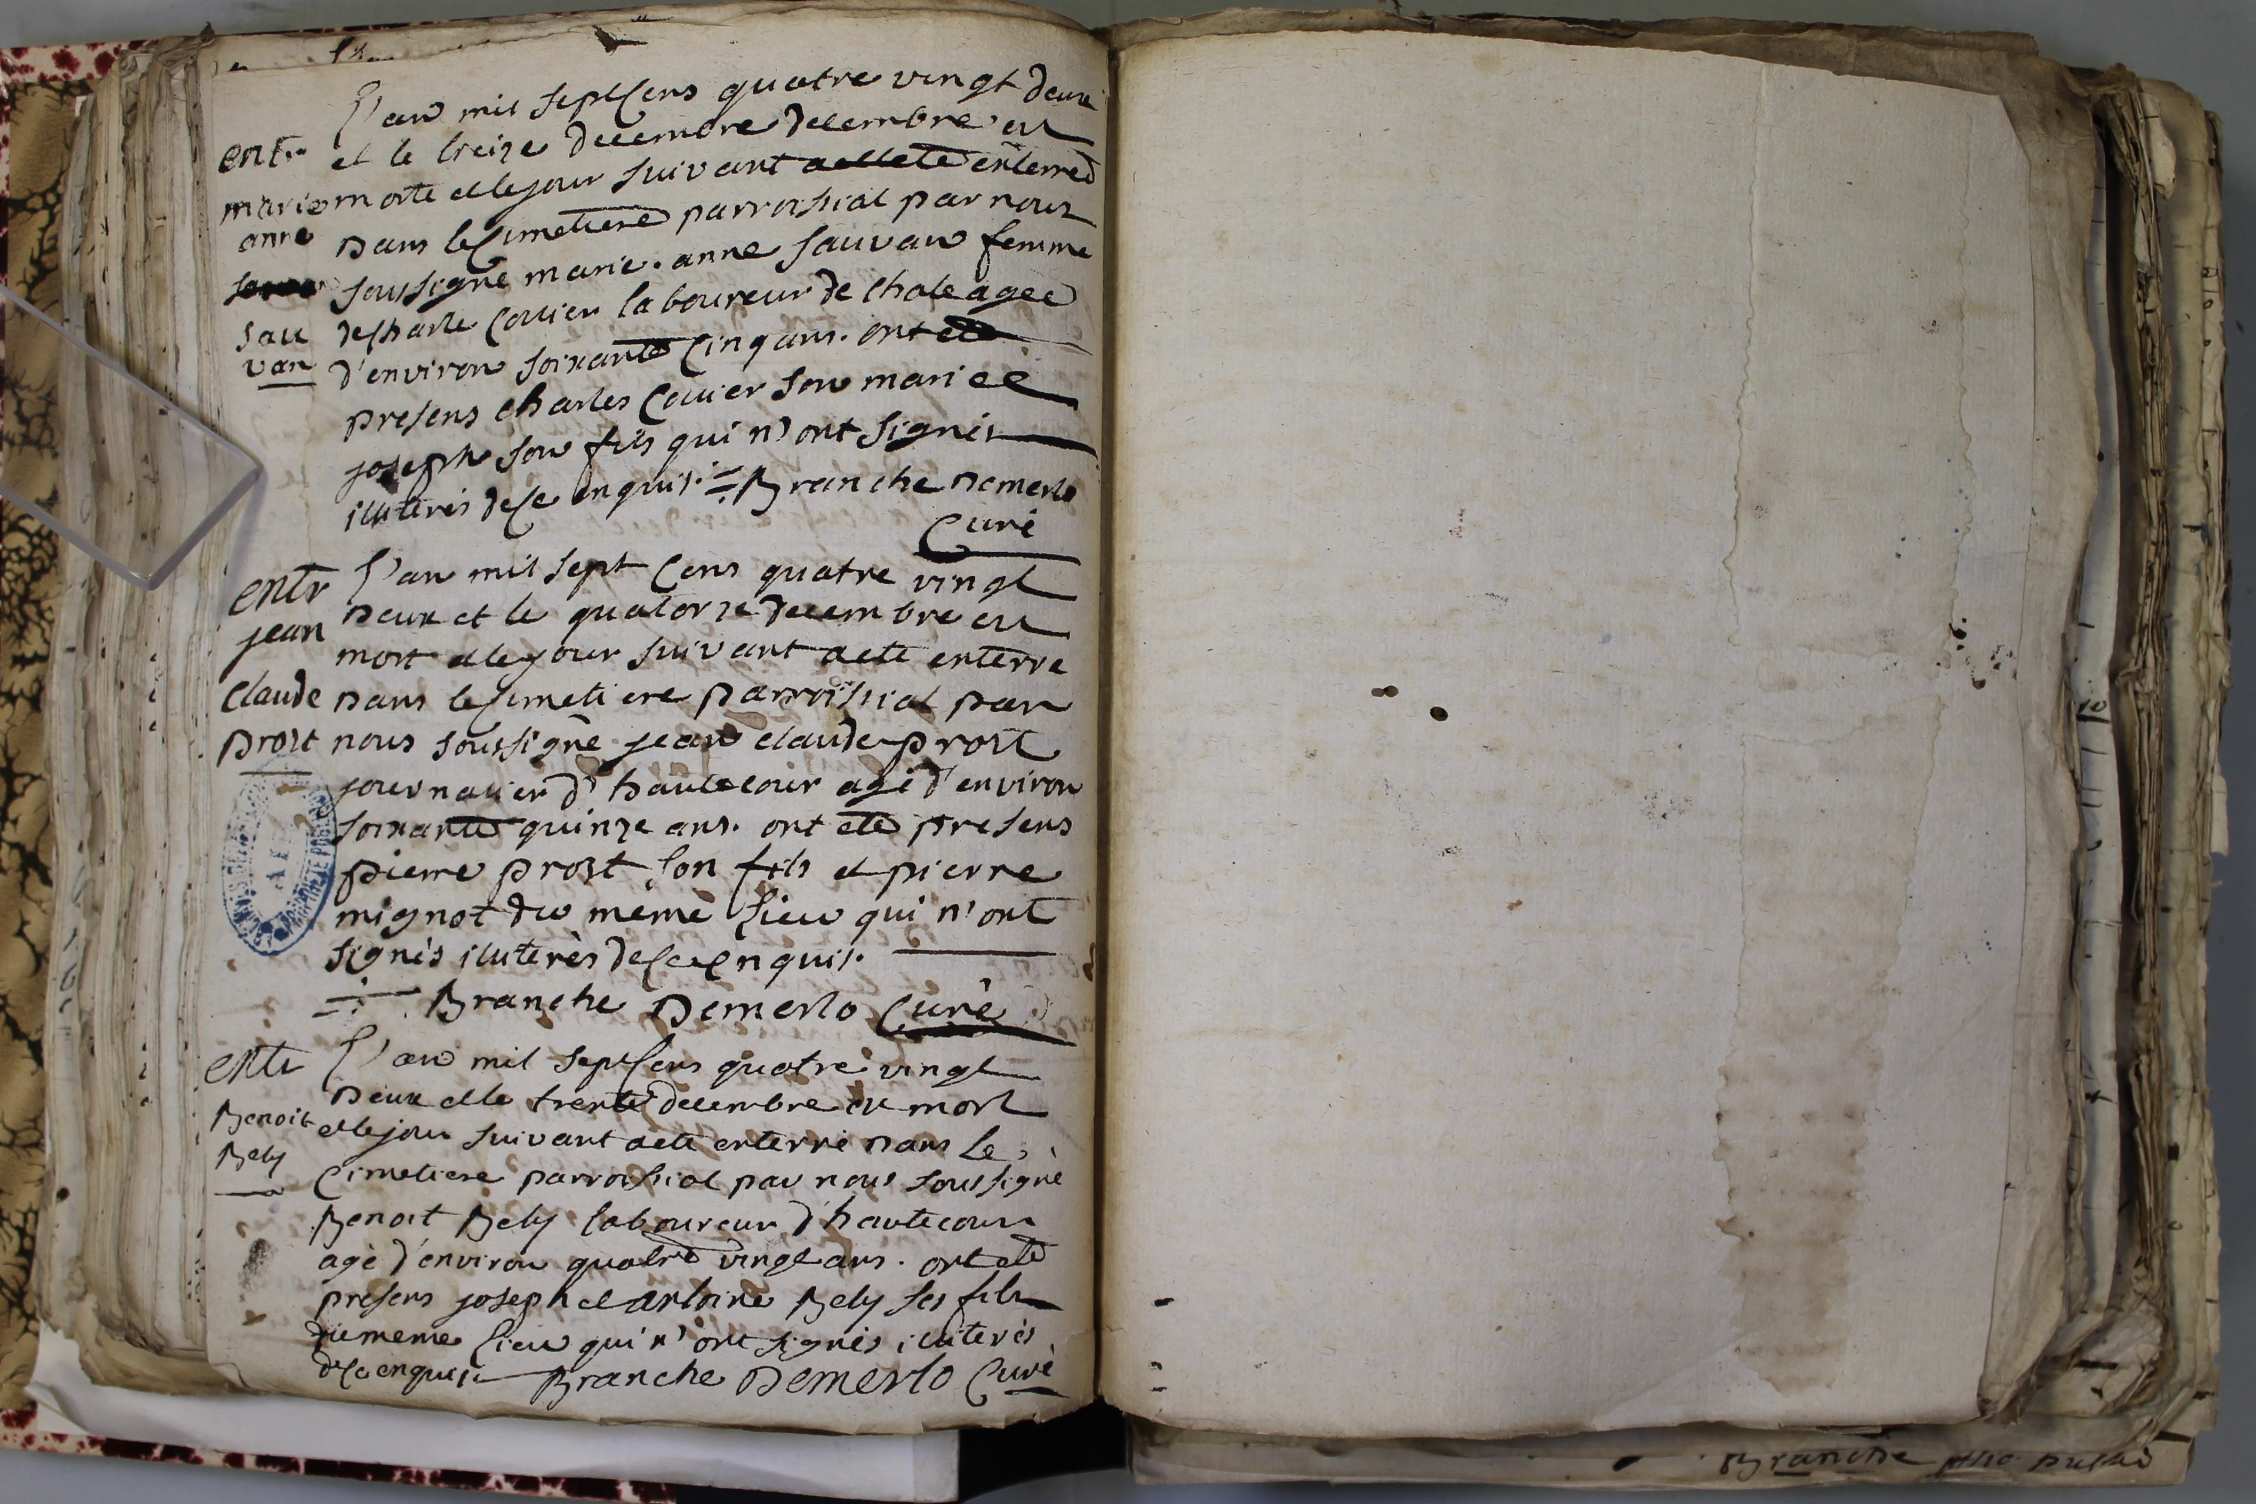 L'an mil sept Cens quatre vingt deux
entr. et le treize decembre decembre est
marie morte et le jour suivant a ette enterreé
anne Dans le Cimetiere parroissial par nous
soussigné marie . anne Sauvan femme
Sau de Charle Cottier laboureur de Chale agee
van d'environ soixante Cinq ans. ont eté
presens Charles Cottier son mari et
joseph son fils qui n'ont signés
illiterés de Ce enquis. Branche Demerlo
Curé
entr L'an mil sept Cens quatre vingt
jean Deux et le quatorze decembre est
mort et le jour suivant a eté enterre
Claude Dans le Cimetiere parroissial par
prost nous soussigné jean claude prost
journalier d'hautecour agé d'environ
soixante quinze ans. ont eté presens
pierre prost son fils et pierre
mignot du même Lieu qui n'ont
signés illiterés de Ce enquis.
Branche Demerlo Curé
entr L'an mil sept Cens quatre vingt
Deux et le trente decembre est mort
Benoit et le jour suivant a eté enterré Dans Le
Bely Cimetiere parroissial par nous soussigné
Benoit Bely laboureur d'hautecour
agé d'environ quatre vingt ans. ont eté
presens joseph et Antoine Bely ses fils
du meme Lieu qui n'ont signés illiterés
de Ce enquis. Branche Demerlo Curé
10
Branche